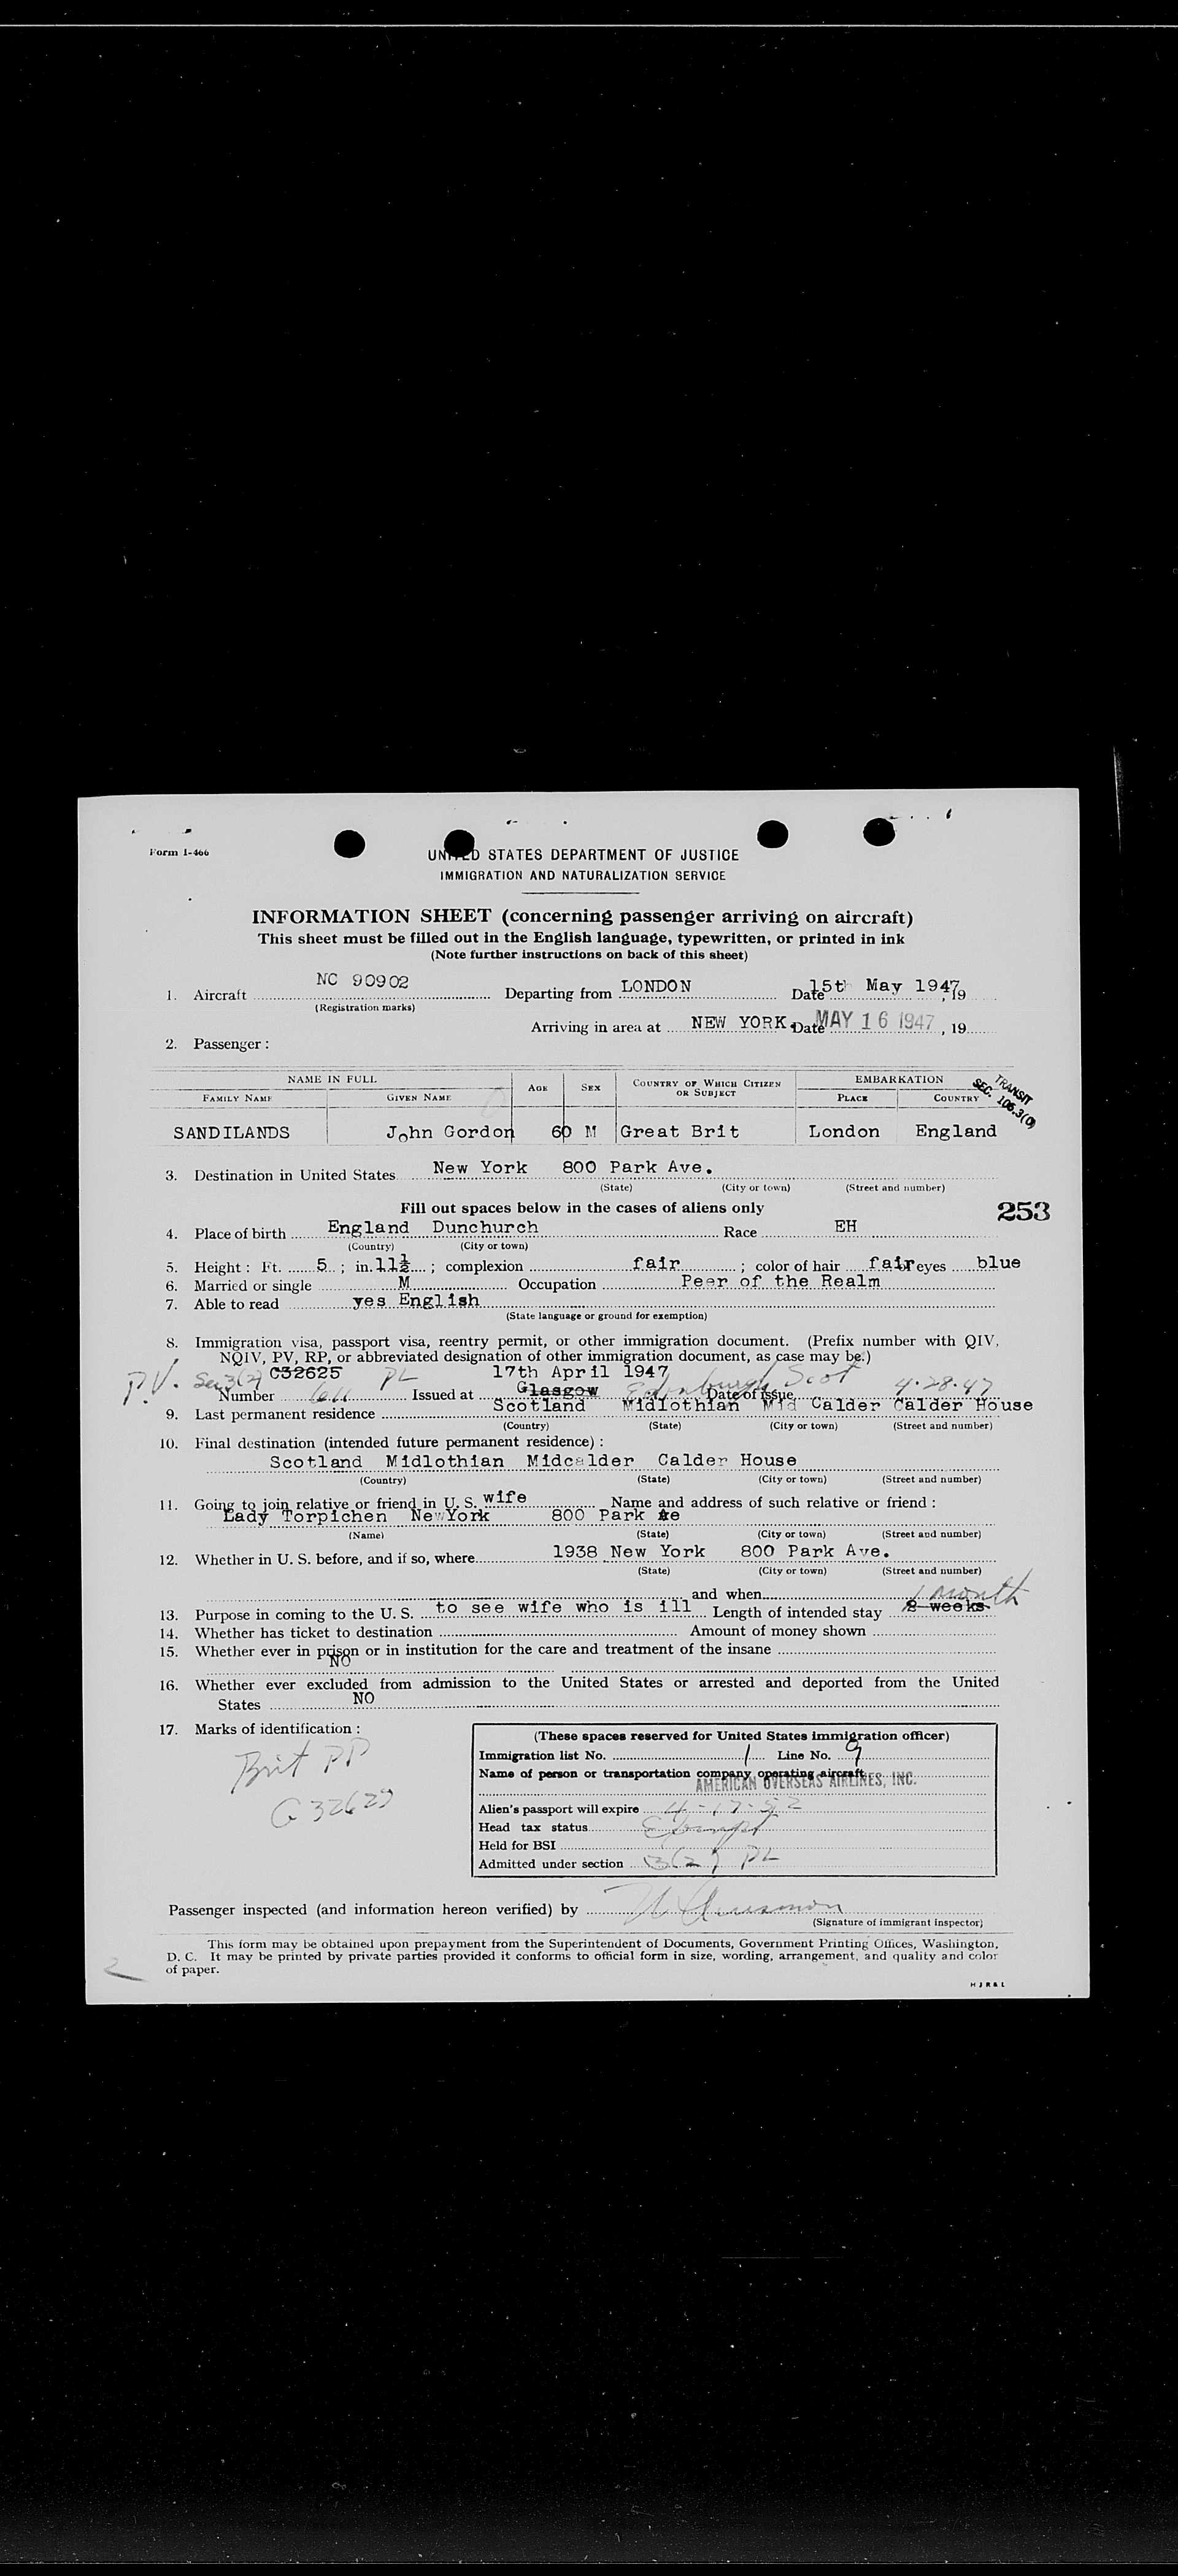 Form I-466
UNITED STATES DEPARTMENT OF JUSTICE
IMMIGRATION AND NATURALIZATION SERVICE
INFORMATION SHEET (concerning passenger arriving on aircraft)
This sheet must be filled out in the English language, typewritten, or printed in ink
(Note further instructions on back of this sheet)
1. Aircraft NC 90902 Departing from LONDON Date 15th May 1947, 19
(Registration marks)
Arriving in area at NEW YORK. Date MAY 16 1947, 19
2. Passenger:
NAME IN FULL AGE SEX COUNTRY OF WHICH CITIZEN OR SUBJECT EMBARKATION
FAMILY NAME GIVEN NAME PLACE COUNTRY
TRANSIT
SEC. 106.3(0)
SANDILANDS John Gordon 60 M Great Brit London England
3. Destination in United States New York 800 Park Ave.
(State) (City or town) (Street and number)
Fill out spaces below in the cases of aliens only
253
4. Place of birth England Dunchurch Race EH
(Country) (City or town)
5. Height: Ft. 5; in. 11½; complexion fair; color of hair fair eyes blue
6. Married or single M Occupation Peer of the Realm
7. Able to read yes English
(State language or ground for exemption)
8. Immigration visa, passport visa, reentry permit, or other immigration document. (Prefix number with QIV,
NQIV, PV, RP, or abbreviated designation of other immigration document, as case may be.)
P.V. Sec 3(2) C32625 PL 17th April 1947
Number 611 Issued at Glasgow Edinburgh Scot Date of issue 4-28-47
9. Last permanent residence Scotland Midlothian Mid Calder Calder House
(Country) (State) (City or town) (Street and number)
10. Final destination (intended future permanent residence):
Scotland Midlothian Midcalder Calder House
(Country) (State) (City or town) (Street and number)
11. Going to join relative or friend in U. S. wife Name and address of such relative or friend:
Lady Torpichen NewYork 800 Park
(Name) (State) (City or town) (Street and number)
12. Whether in U. S. before, and if so, where 1938 New York 800 Park Ave.
(State) (City or town) (Street and number)
and when
13. Purpose in coming to the U. S. to see wife who is ill Length of intended stay 2 weeks 1 month
14. Whether has ticket to destination Amount of money shown
15. Whether ever in prison or in institution for the care and treatment of the insane
NO
16. Whether ever excluded from admission to the United States or arrested and deported from the United
States NO
17. Marks of identification:
Brit PP
C 32625
(These spaces reserved for United States immigration officer)
Immigration list No. 1 Line No. 9
Name of person or transportation company operating aircraft
AMERICAN OVERSEAS AIRLINES, INC.
Alien's passport will expire 4-17-52
Head tax status Exempt
Held for BSI
Admitted under section 3(2) PL
Passenger inspected (and information hereon verified) by
(Signature of immigrant inspector)
This form may be obtained upon prepayment from the Superintendent of Documents, Government Printing Offices, Washington,
D. C. It may be printed by private parties provided it conforms to official form in size, wording, arrangement, and quality and color
of paper.
2
H J R & L